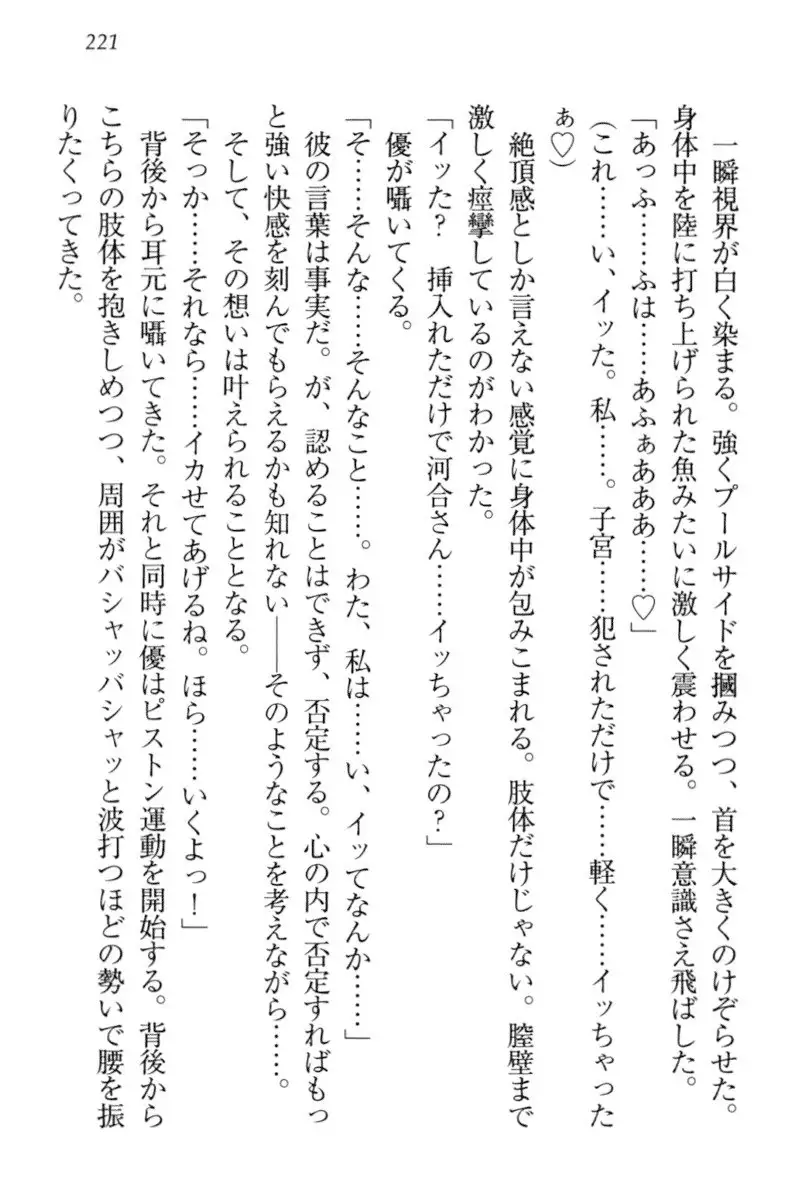 221
一瞬視界が白く染まる。強くプールサイドを摑みつつ、首を大きくのけぞらせた。
身体中を陸に打ち上げられた魚みたいに激しく震わせる。一瞬意識さえ飛ばした。
「あっふ……ふは……あふぁあああ……♡」
(これ……い、イッた。私……。子宮……犯されただけで……軽く……イッちゃった
ぁ♡)
絶頂感としか言えない感覚に身体中が包みこまれる。肢体だけじゃない。膣壁まで
激しく痙攣しているのがわかった。
「イッた? 挿入れただけで河合さん……イッちゃったの?」
優が囁いてくる。
「そ……そんな……そんなこと……。わた、私は……い、イッてなんか……」
彼の言葉は事実だ。が、認めることはできず、否定する。心の内で否定すればもっ
と強い快感を刻んでもらえるかも知れない──そのようなことを考えながら……。
そして、その想いは叶えられることとなる。
「そっか……それなら……イカせてあげるね。ほら……いくよっ!」
背後から耳元に囁いてきた。それと同時に優はピストン運動を開始する。背後から
こちらの肢体を抱きしめつつ、周囲がバシャッバシャッと波打つほどの勢いで腰を振
りたくってきた。